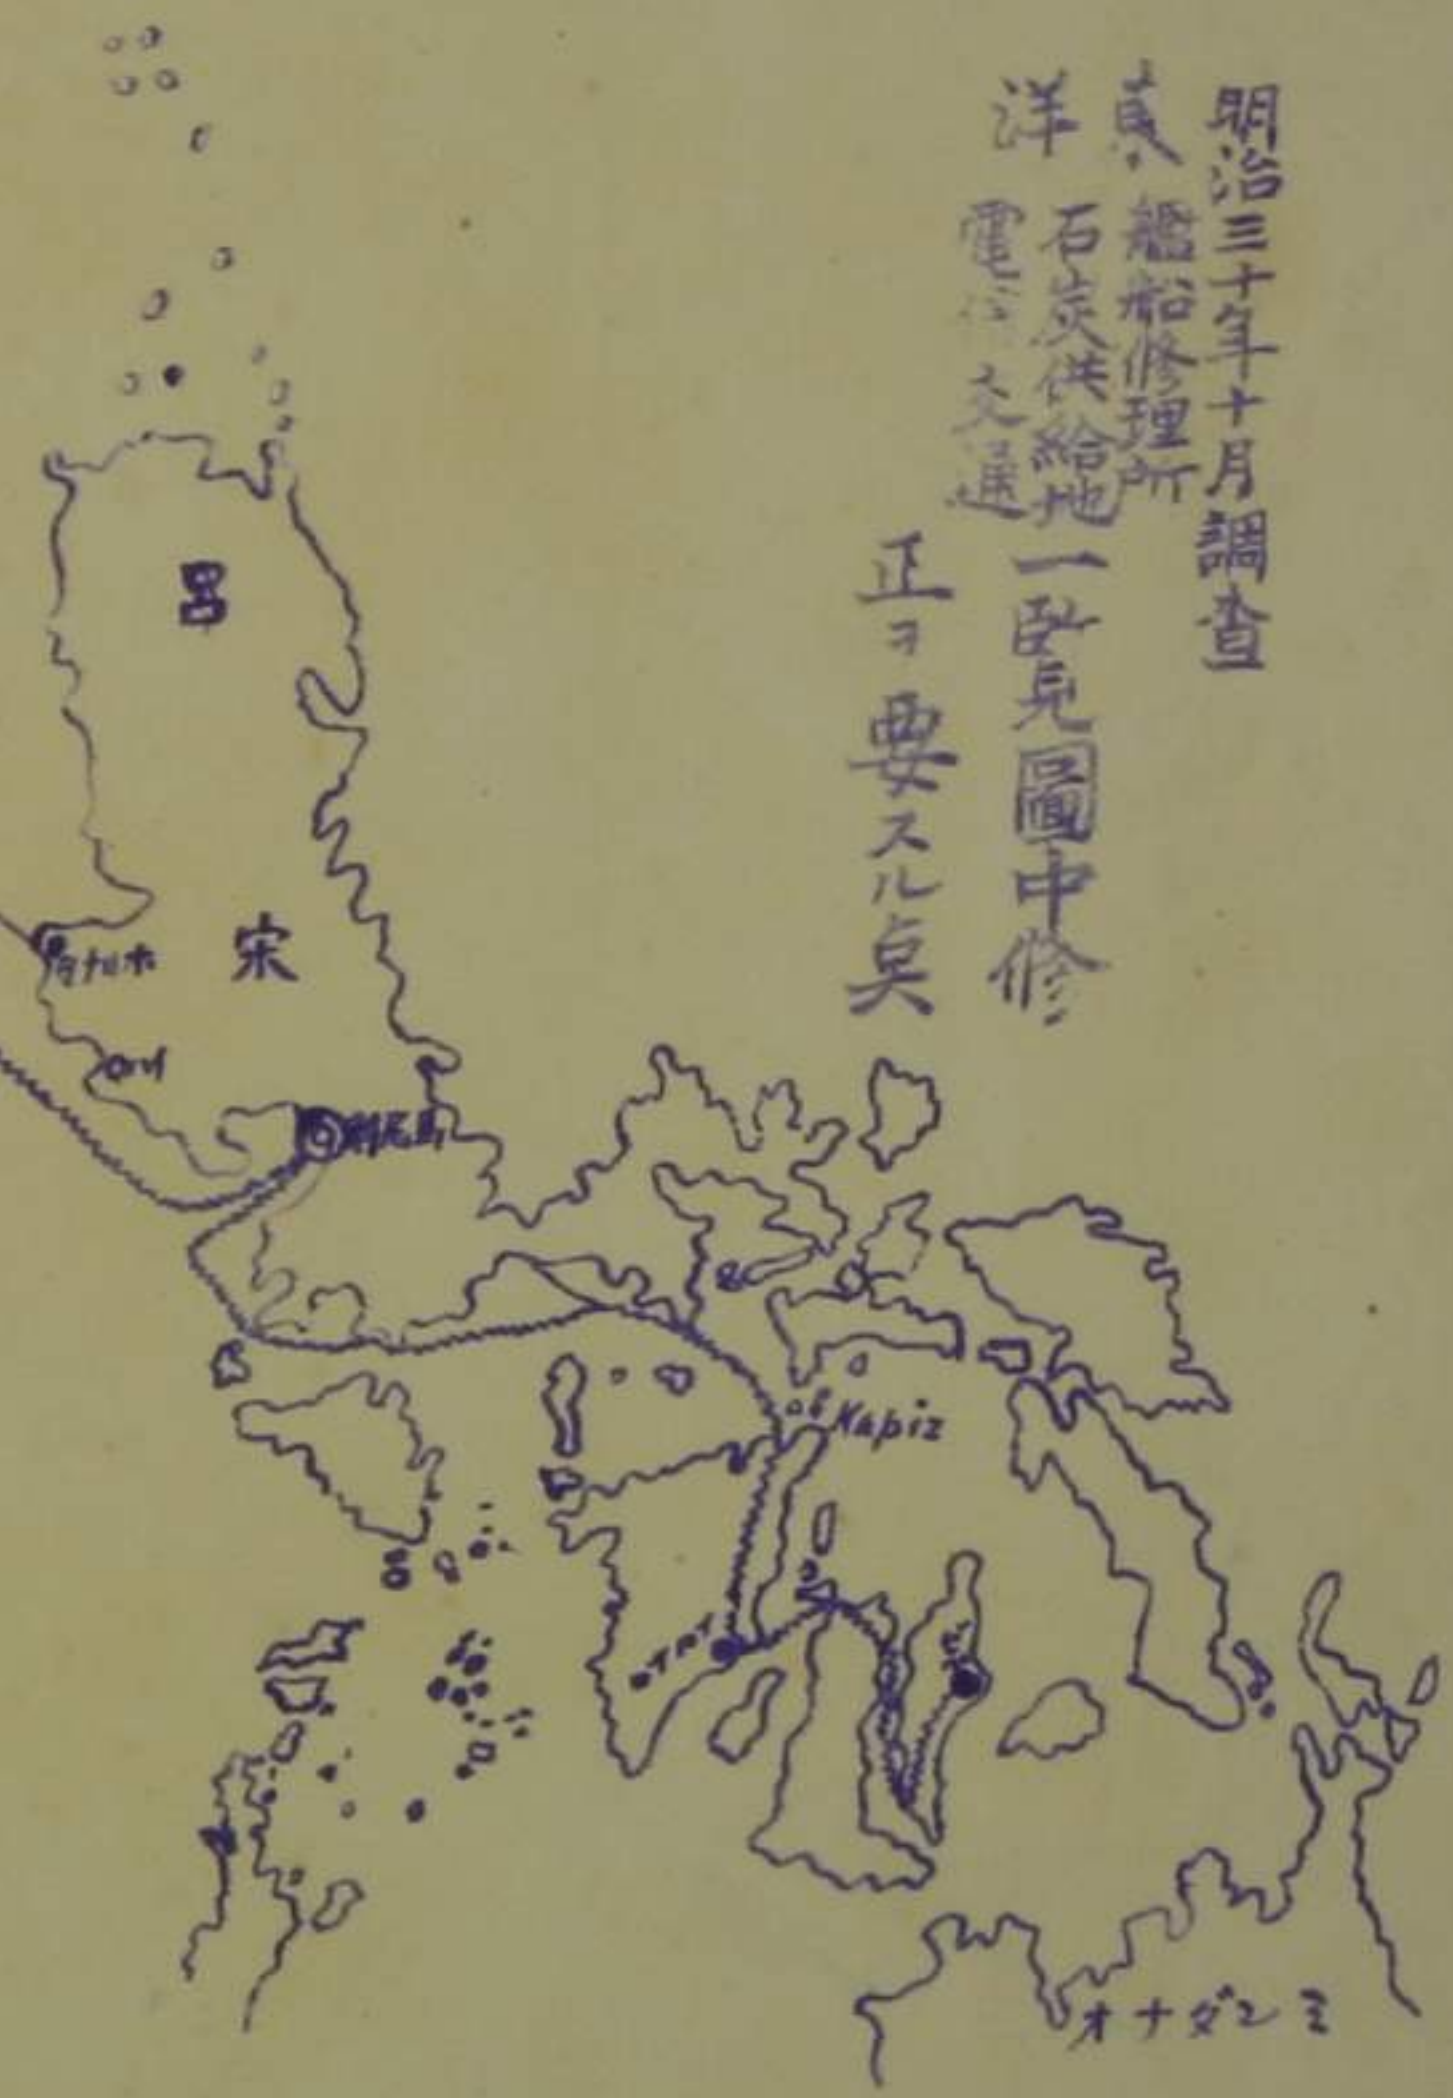 明治三十年十月調査
艦船修理所
石炭供給地
電信交通
洋
一覧圖中修
正ヲ要スル点
呂
宋
馬尼剌
Kapiz
ミンダナオ